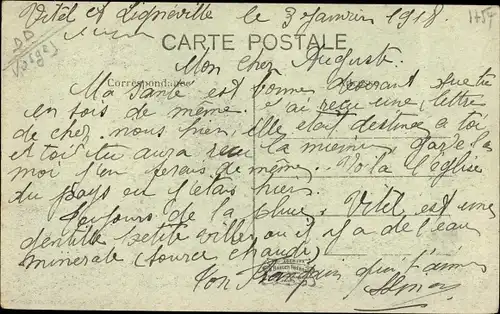 Vitel et Ligneville le 3 Janvier 1918
CARTE POSTALE
Correspondance
Mon cher Auguste.
Ma santé est bonne désirant que tu
en sois de même. J'ai reçu une lettre
de chez nous hier, elle était destinée a toi
et toi tu aura reçu la mienne, garde la
moi j'en ferais de même. Voila l'église
du pays ou j'étais hier.
Toujours de la pluie. Vitel est une
gentille petite ville ou il y a de l'eau
minerale (source chaude)
Ton qui t'aime